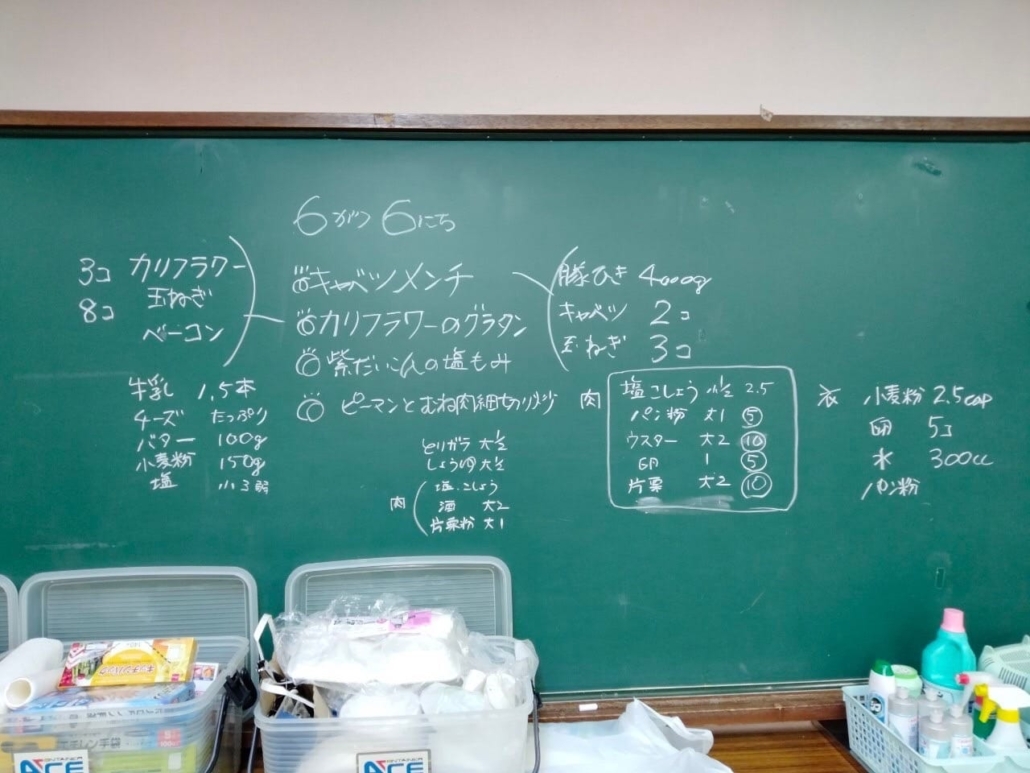 6がつ6にち
3コ カリフラワー
8コ 玉ねぎ
ベーコン
牛乳 1,5本
チーズ たっぷり
バター 100g
小麦粉 150g
塩 小3弱
キャベツメンチ
カリフラワーのグラタン
紫だいこんの塩もみ
ピーマンとむね肉細切り炒
とりガラ 大1/2
しょうゆ 大1/2
肉
塩・こしょう
酒 大2
片栗粉 大1
豚ひき 4000g
キャベツ 2コ
玉ねぎ 3コ
肉
塩こしょう 小1/2 2.5
パン粉 大1 ⑤
ウスター 大2 ⑩
卵 1 ⑤
片栗 大2 ⑩
衣 小麦粉 2.5cup
卵 5コ
水 300cc
パン粉
ACE
ACE